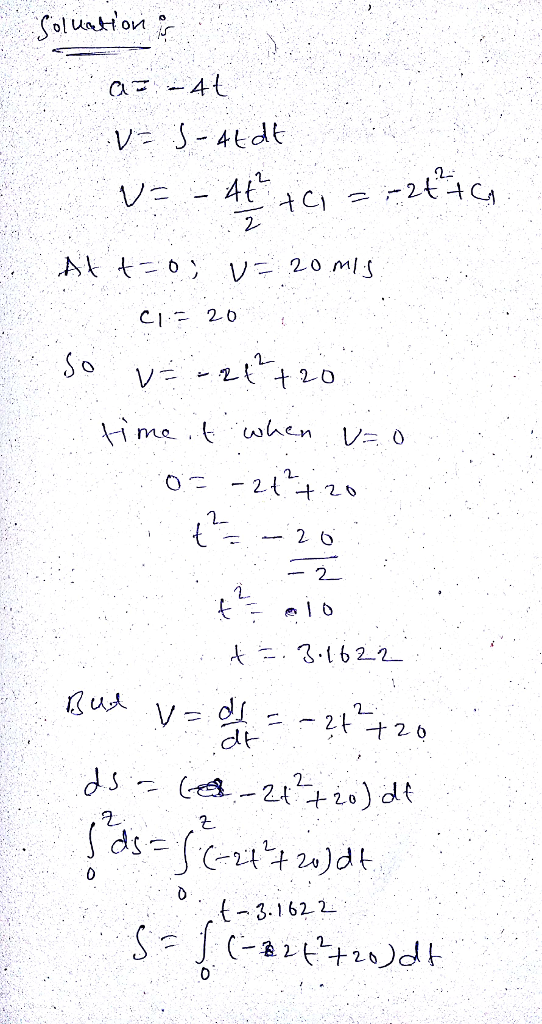 Soluation :-
a = -4t
V = ∫-4t dt
V = - 4t²/2 + C1 = -2t² + C1
At t=0; V= 20 m/s
C1 = 20
So V = -2t² + 20
time, t when V=0
0 = -2t² + 20
t² = -20/-2
t² = 10
t = 3.1622
But V = ds/dt = -2t² + 20
ds = (-2t² + 20) dt
∫₀ᶻ ds = ∫₀ᶻ (-2t² + 20) dt
t-3.1622
S = ∫₀ (-2t² + 20) dt